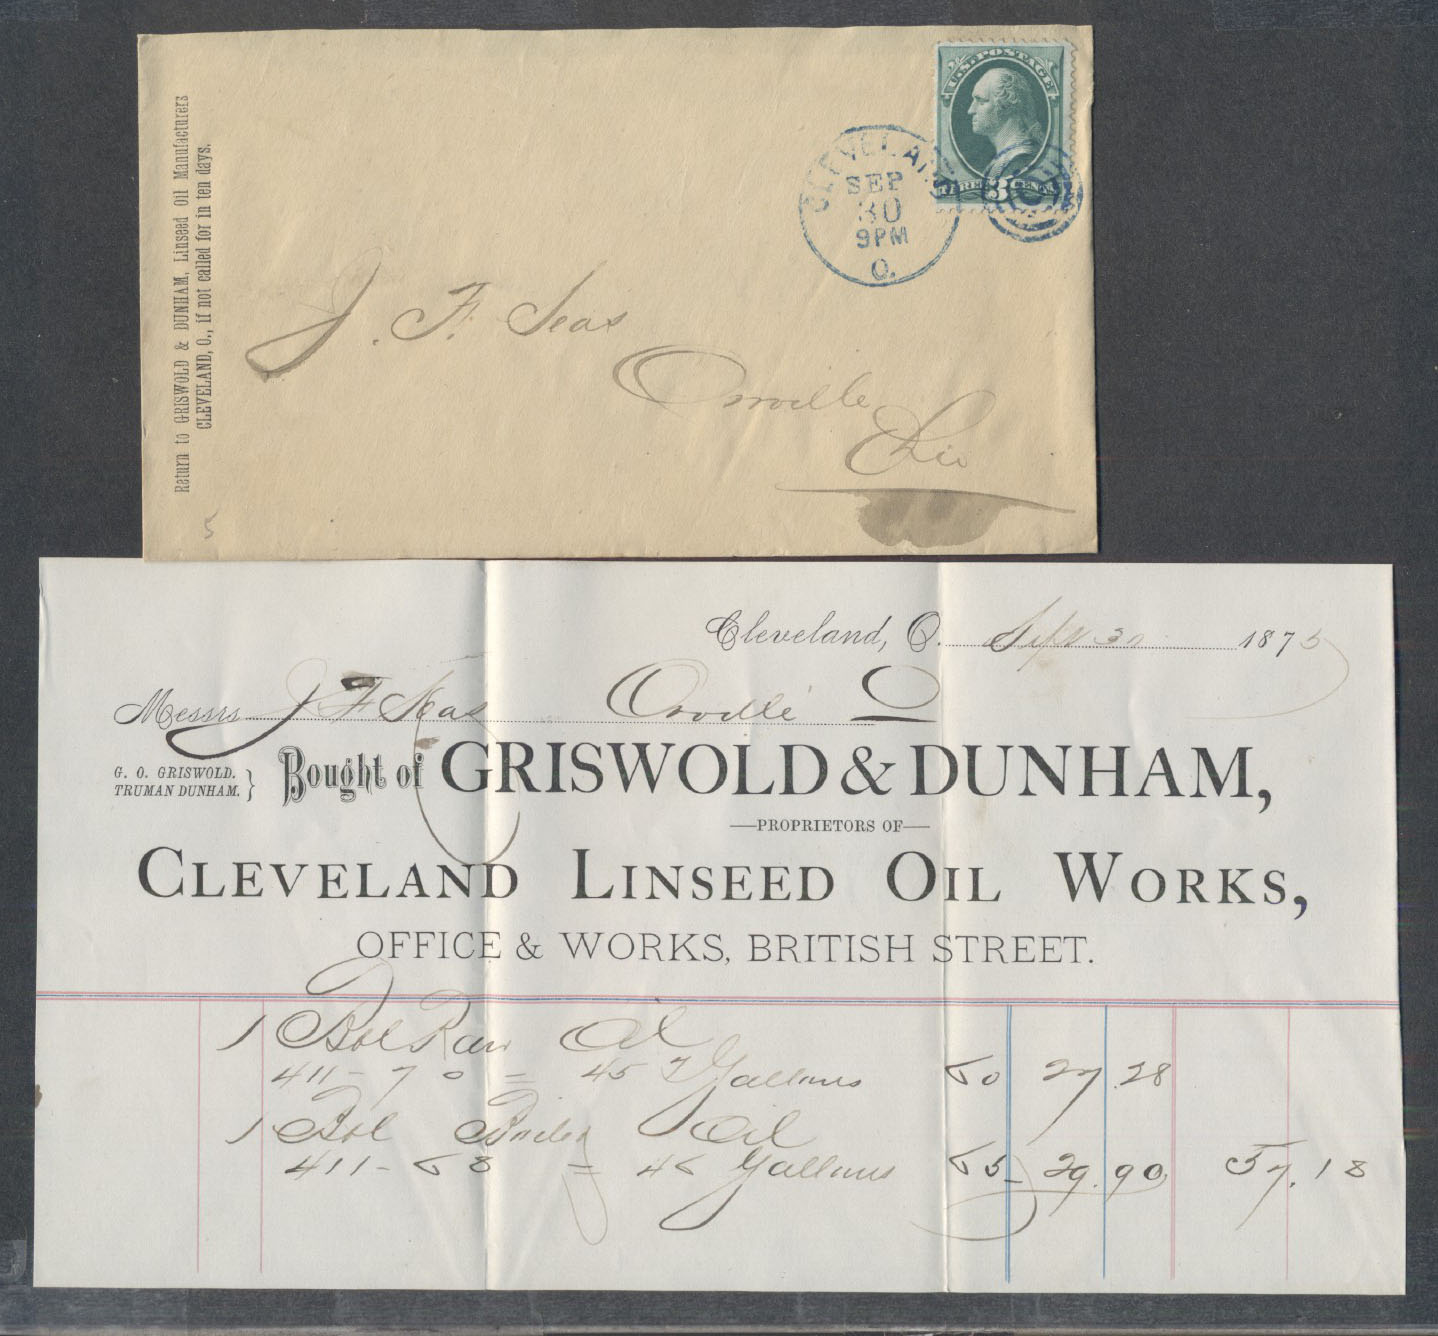 Return to GRISWOLD & DUNHAM, Linseed Oil Manufacturers
CLEVELAND, O., if not called for in ten days.
U.S. POSTAGE
THREE 3 CENTS
CLEVELAND
SEP
30
9PM
O.
J. F. Seas
Orrville
Ohio
5
Cleveland, O. Sept 30 1875
Messrs J F Seas Orrville O
G. O. GRISWOLD.
TRUMAN DUNHAM.
Bought of GRISWOLD & DUNHAM,
—PROPRIETORS OF—
CLEVELAND LINSEED OIL WORKS,
OFFICE & WORKS, BRITISH STREET.
1 Bbl Raw Oil
411 - 70 = 45 Gallons 60 27.28
1 Bbl Boiled Oil
411 - 68 = 46 Gallons 65 29.90 57.18